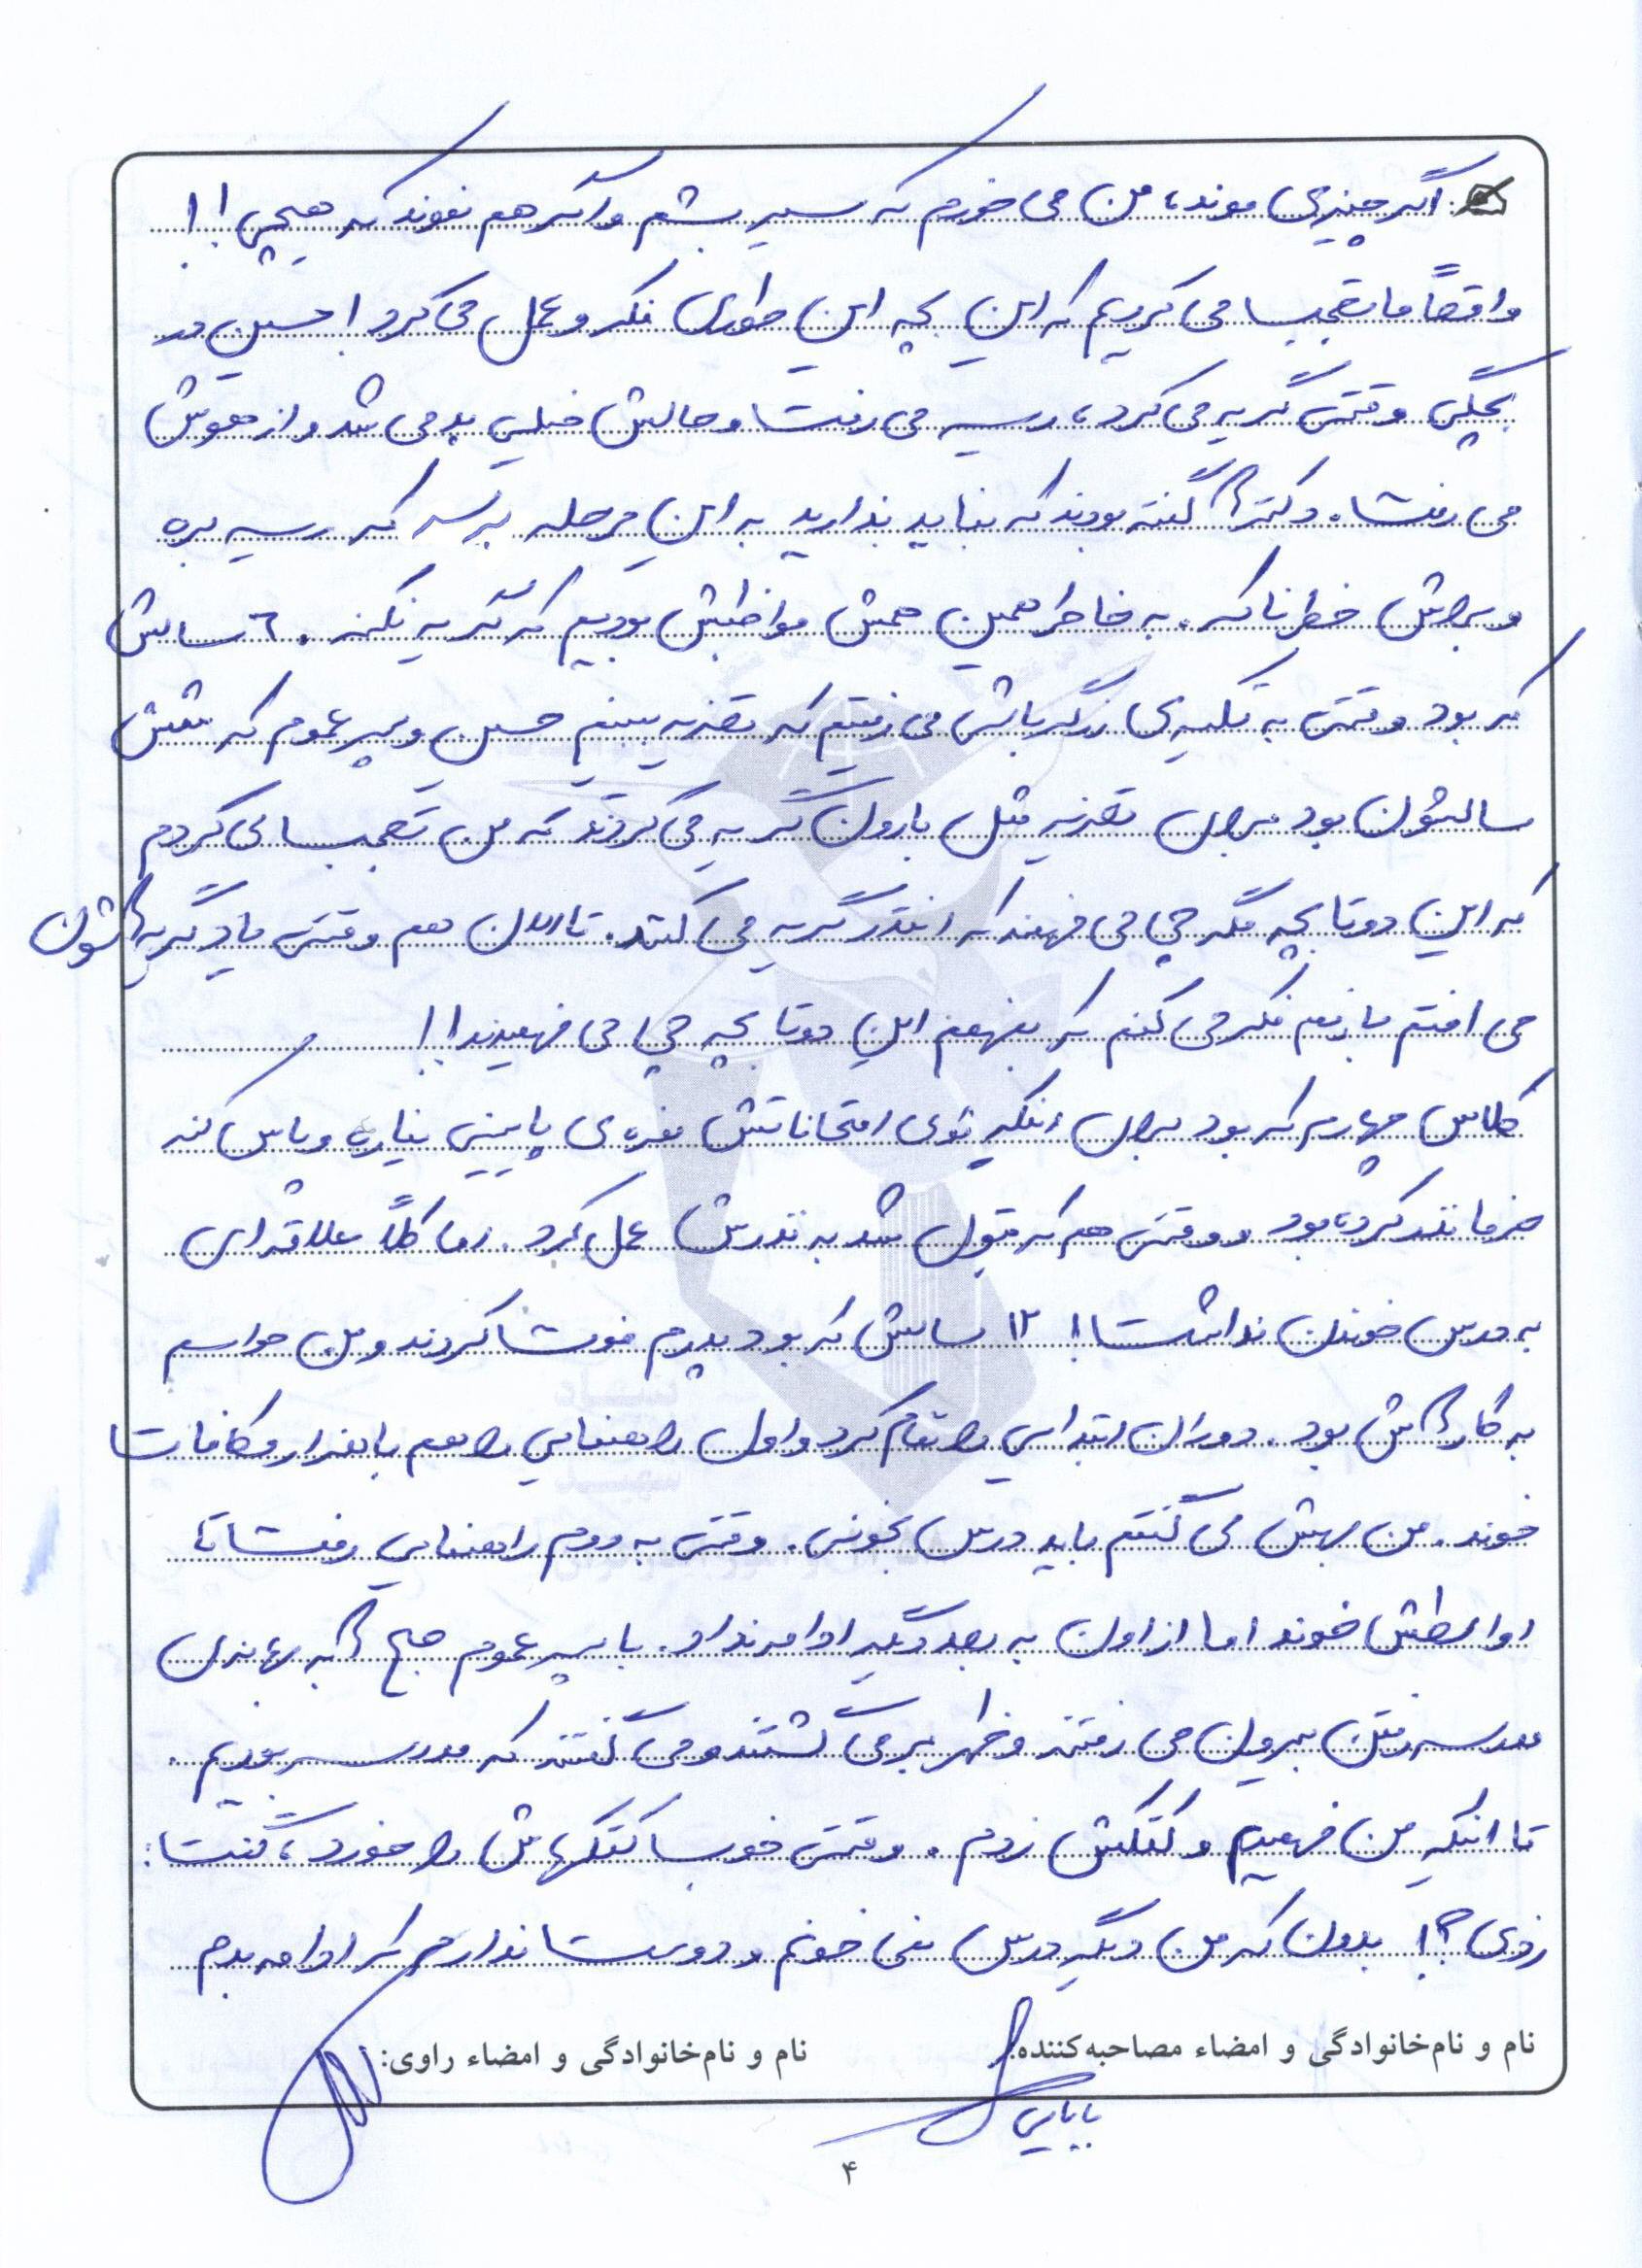 اگر چیزی موند، من می خورم که سیر بشم و اگر هم نموند که هیچی!!
واقعاً ما تعجب می کردیم که این بچه این طوری فکر و عمل می کرد! حسین در
بچگی وقتی گریه می کرد، ریسه می رفت و حالش خیلی بد می شد و از هوش
می رفت. دکترها گفته بودند که نباید بذارید به این مرحله برسه که ریسه بره
و براش خطرناکه. به خاطر همین همش مواظبش بودیم که گریه نکنه. ۶ سالش
که بود وقتی به تکیه ی می رفتیم که تعزیه ببینیم حسین و پسر عموم که شش
سالشون بود برای تعزیه مثل بارون گریه می کردند که من تعجب می کردم
که این دو تا بچه مگه چی می فهمند که انقدر گریه می کنند. تا الان هم وقتی یاد گریه هاشون
می افتم بازهم فکر می کنم که بفهمم این دو تا بچه چی می فهمیدند!!
کلاس چهارم که بود برای اینکه توی امتحاناتش نمره ی پایینی نیاره و پاس کنه
خرما نذر کرده بود و وقتی هم که قبول شد به نذرش عمل کرد. اما کلاً علاقه ای
به درس خوندن نداشت! ۱۲ سالش که بود پدرم فوت کردند و من حواسم
به کارهاش بود. دوران ابتدایی را تمام کرد و اول راهنمایی را هم با هزار مکافات
خوند. من بهش می گفتم باید درس بخونی. وقتی به دوم راهنمایی رفت تا
اواسطش خوند اما از اون به بعد دیگه ادامه نداد. با پسر عموم صبح ها به بهانه ی
مدرسه رفتن بیرون می رفتند و ظهر برمی گشتند و می گفتند که مدرسه بودیم.
تا اینکه من فهمیدم و کتکش زدم. وقتی خوب کتکهاش را خورد، گفت:
زدی؟! بدون که من دیگه درس نمی خونم و دوست ندارم که ادامه بدم
نام و نام‌خانوادگی و امضاء مصاحبه‌کننده: نام و نام‌خانوادگی و امضاء راوی:
بابایی
۴